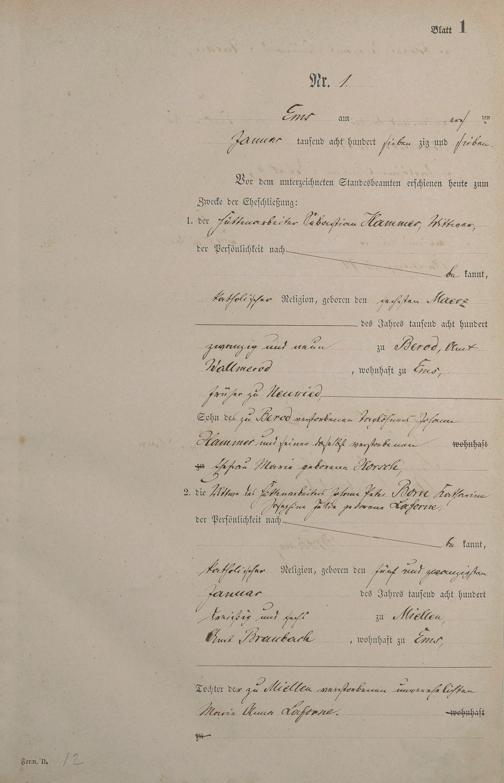 Blatt 1
Nr. 1.
Ems am ersten
Januar tausend acht hundert sieben zig und sieben.
Vor dem unterzeichneten Standesbeamten erschienen heute zum
Zwecke der Eheschließung:
1. der Hüttenarbeiter Sebastian Hammer, Wittwer,
der Persönlichkeit nach
be kannt,
katholischer Religion, geboren den sechsten Maerz
des Jahres tausend acht hundert
zwanzig und neun zu Berod, Amt
Wallmerod, wohnhaft zu Ems,
früher zu Neuwied
Sohn des zu Berod verstorbenen Taglöhners Johann
Hammer, und seiner daselbst verstorbenen wohnhaft
zu Ehefrau Maria geborene
2. die Wittwe des Hüttenarbeiters Johann Peter Born Katharina
Josephine Julie geborene Laforne,
der Persönlichkeit nach
be kannt,
katholischer Religion, geboren den fünf und zwanzigsten
Januar des Jahres tausend acht hundert
dreißig und sechs zu Miellen,
Amt Braubach, wohnhaft zu Ems,
Tochter der zu Miellen verstorbenen unverehelichten
Maria Anna Laforne. wohnhaft
zu
Form. B. 12